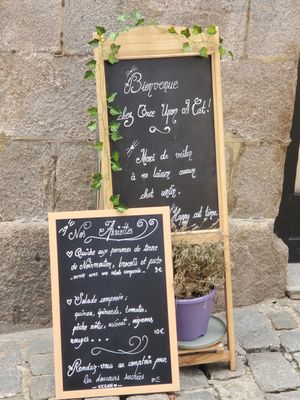 Bienvenue
chez Once Upon A Cat!
Merci de veiller
à ne laisser aucun
chat sortir.
Happy cat time.
Nos Assiettes
♡ Quiche aux pommes de terre
de Noirmoutier, brocolis et pesto
servie avec une salade composée 9€
♡ Salade composée:
quinoa, épinards, tomates,
pêche rôtie, avocat, oignons
rouges... 10€
Rendez-vous au comptoir pour
les douceurs sucrées
VEGAN